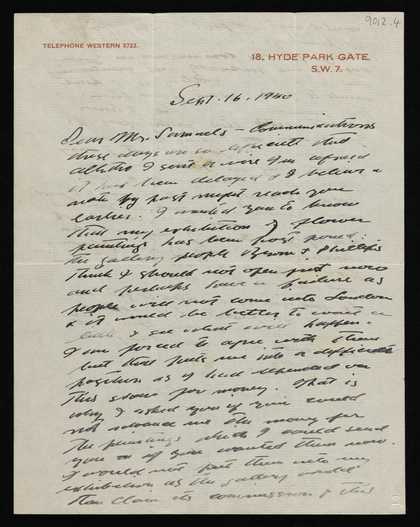 9012.4
TELEPHONE WESTERN 3722.
18, HYDE PARK GATE,
S.W.7.
Sept. 16, 1940
Dear Mr. Samuels – Communications
these days are so uncertain that
altho I sent a wire I am afraid
it has been delayed & I believe a
note by post might reach you
earlier. I wanted you to know
that my exhibition of flower
paintings has been postponed:
the gallery people Brown & Phillips
think I should not open just now
and perhaps have a failure as
people will not come into London
& it would be better to wait a
little & see what will happen.
I am forced to agree with them
but that puts me into a difficult
position as I had depended on
this show for money. That is
why I asked you if you could
not advance me the money for
the paintings which I would send
you or if you wanted them now.
I would not put them into my
exhibition as the gallery would
then claim its commission & this